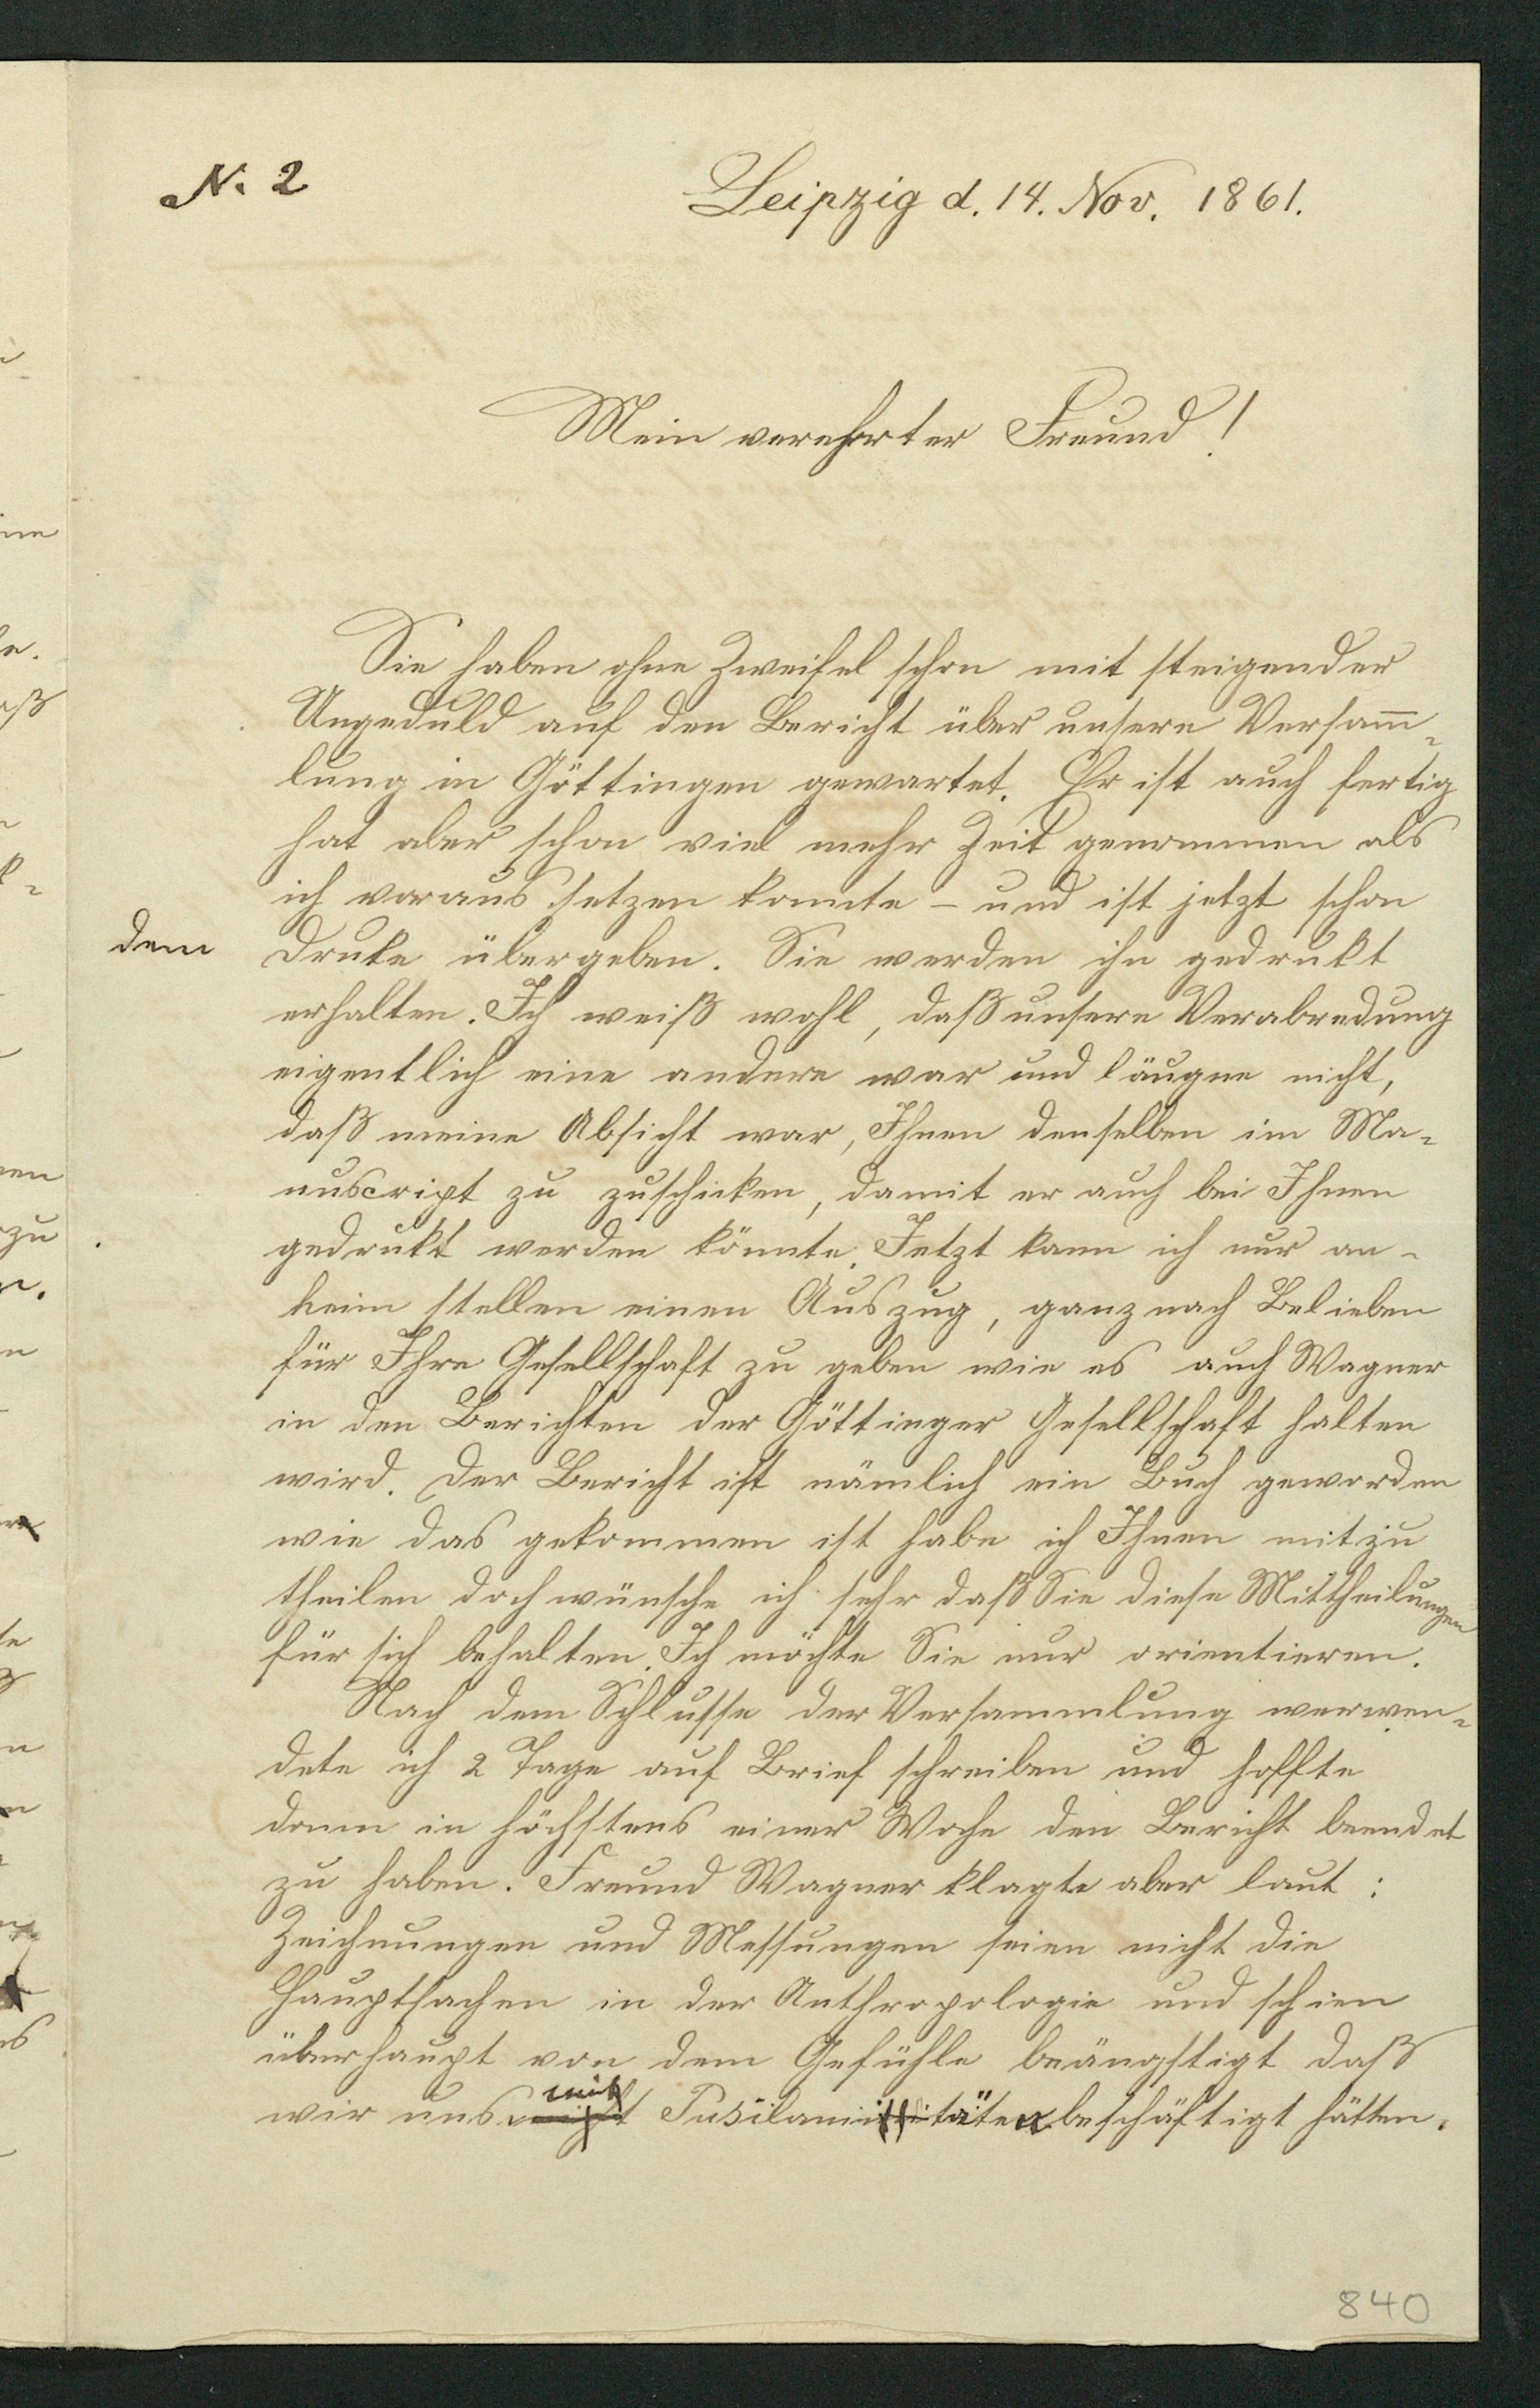 N. 2
Leipzig d. 14. Nov. 1861.
Mein verehrter Freund!
Sie haben ohne Zweifel schon mit steigender
Ungeduld auf den Bericht über unsere Versam̅-
lung in Göttingen gewartet. Er ist auch fertig
hat aber schon viel mehr Zeit genommen als
ich voraus setzen konnte – und ist jetzt schon
dem Druke übergeben. Sie werden ihn gedrukt
erhalten. Ich weiß wohl, daß unsere Verabredung
eigentlich eine andere war und läugne nicht,
daß meine Absicht war, Ihnen denselben im Ma-
nuscript zu zuschicken, damit er auch bei Ihnen
gedrukt werden könnte. Jetzt kann ich nur an-
heim stellen einen Auszug, ganz nach Belieben
für Ihre Gesellschaft zu geben wie es auch Wagner
in den Berichten der Göttinger Gesellschaft halten
wird. Der Bericht ist nämlich ein Buch geworden
wie das gekommen ist habe ich Ihnen mitzu
theilen doch wünsche ich sehr daß Sie diese Mittheilungen
für sich behalten. Ich möchte Sie nur orientieren.
Nach dem Schlusse der Versammlung verwen-
dete ich 2 Tage auf Brief schreiben und hoffte
dann in höchstens einer Woche den Bericht beendet
zu haben. Freund Wagner klagte aber laut:
Zeichnungen und Messungen seien nicht die
Hauptsachen in der Anthropologie und schien
überhaupt von dem Gefühle beängstigt daß
wir uns mit beschäftigt hätten.
840